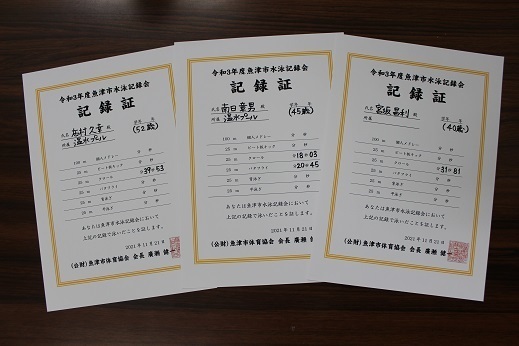 令和3年度魚津市水泳記録会
記録証
氏名 志村久幸 殿 学年 年
所属 温水プール (52歳)
100 m 個人メドレー 分 秒
25 m ビート板キック 分 秒
25 m クロール 分 秒
25 m バタフライ 分39秒53
25 m 背泳ぎ 分 秒
25 m 平泳ぎ 分 秒
あなたは魚津市水泳記録会において
上記の記録で泳いだことを証します。
2021年11月21日
(公財)魚津市体育協会 会長 廣瀬 健一
令和3年度魚津市水泳記録会
記録証
氏名 南日章男 殿 学年 年
所属 温水プール (45歳)
100 m 個人メドレー 分 秒
25 m ビート板キック 分 秒
25 m クロール 分18秒03
25 m バタフライ 分20秒45
25 m 背泳ぎ 分 秒
25 m 平泳ぎ 分 秒
あなたは魚津市水泳記録会において
上記の記録で泳いだことを証します。
2021年11月21日
(公財)魚津市体育協会 会長 廣瀬 健
令和3年度魚津市水泳記録会
記録証
氏名 宮坂昌利 殿 学年 年
所属 (40歳)
100 m 個人メドレー 分 秒
25 m ビート板キック 分 秒
25 m クロール 分31秒81
25 m バタフライ 分 秒
25 m 背泳ぎ 分 秒
25 m 平泳ぎ 分 秒
あなたは魚津市水泳記録会において
上記の記録で泳いだことを証します。
2021年11月21日
(公財)魚津市体育協会 会長 廣瀬 健一